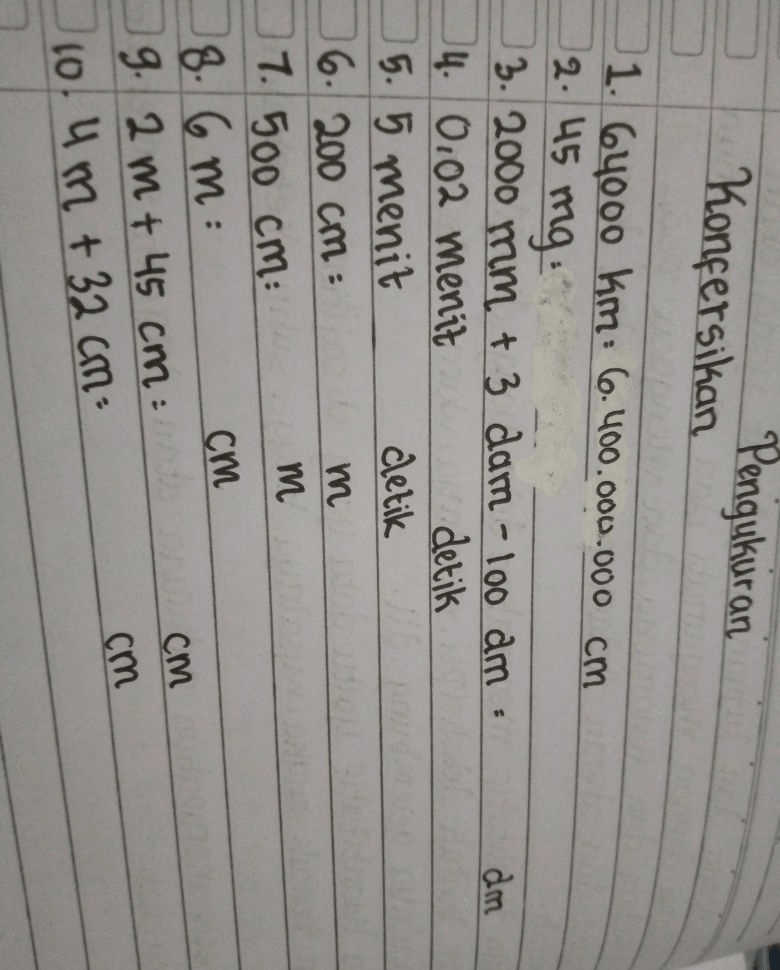 Pengukuran
Konfersikan
1. 64000 km = 6.400.000.000 cm
2. 45 mg =
3. 2000 mm + 3 dam - 100 dm = dm
4. 0,02 menit detik
5. 5 menit detik
6. 200 cm = m
7. 500 cm = m
8. 6 m = cm
9. 2 m + 45 cm = cm
10. 4 m + 32 cm = cm